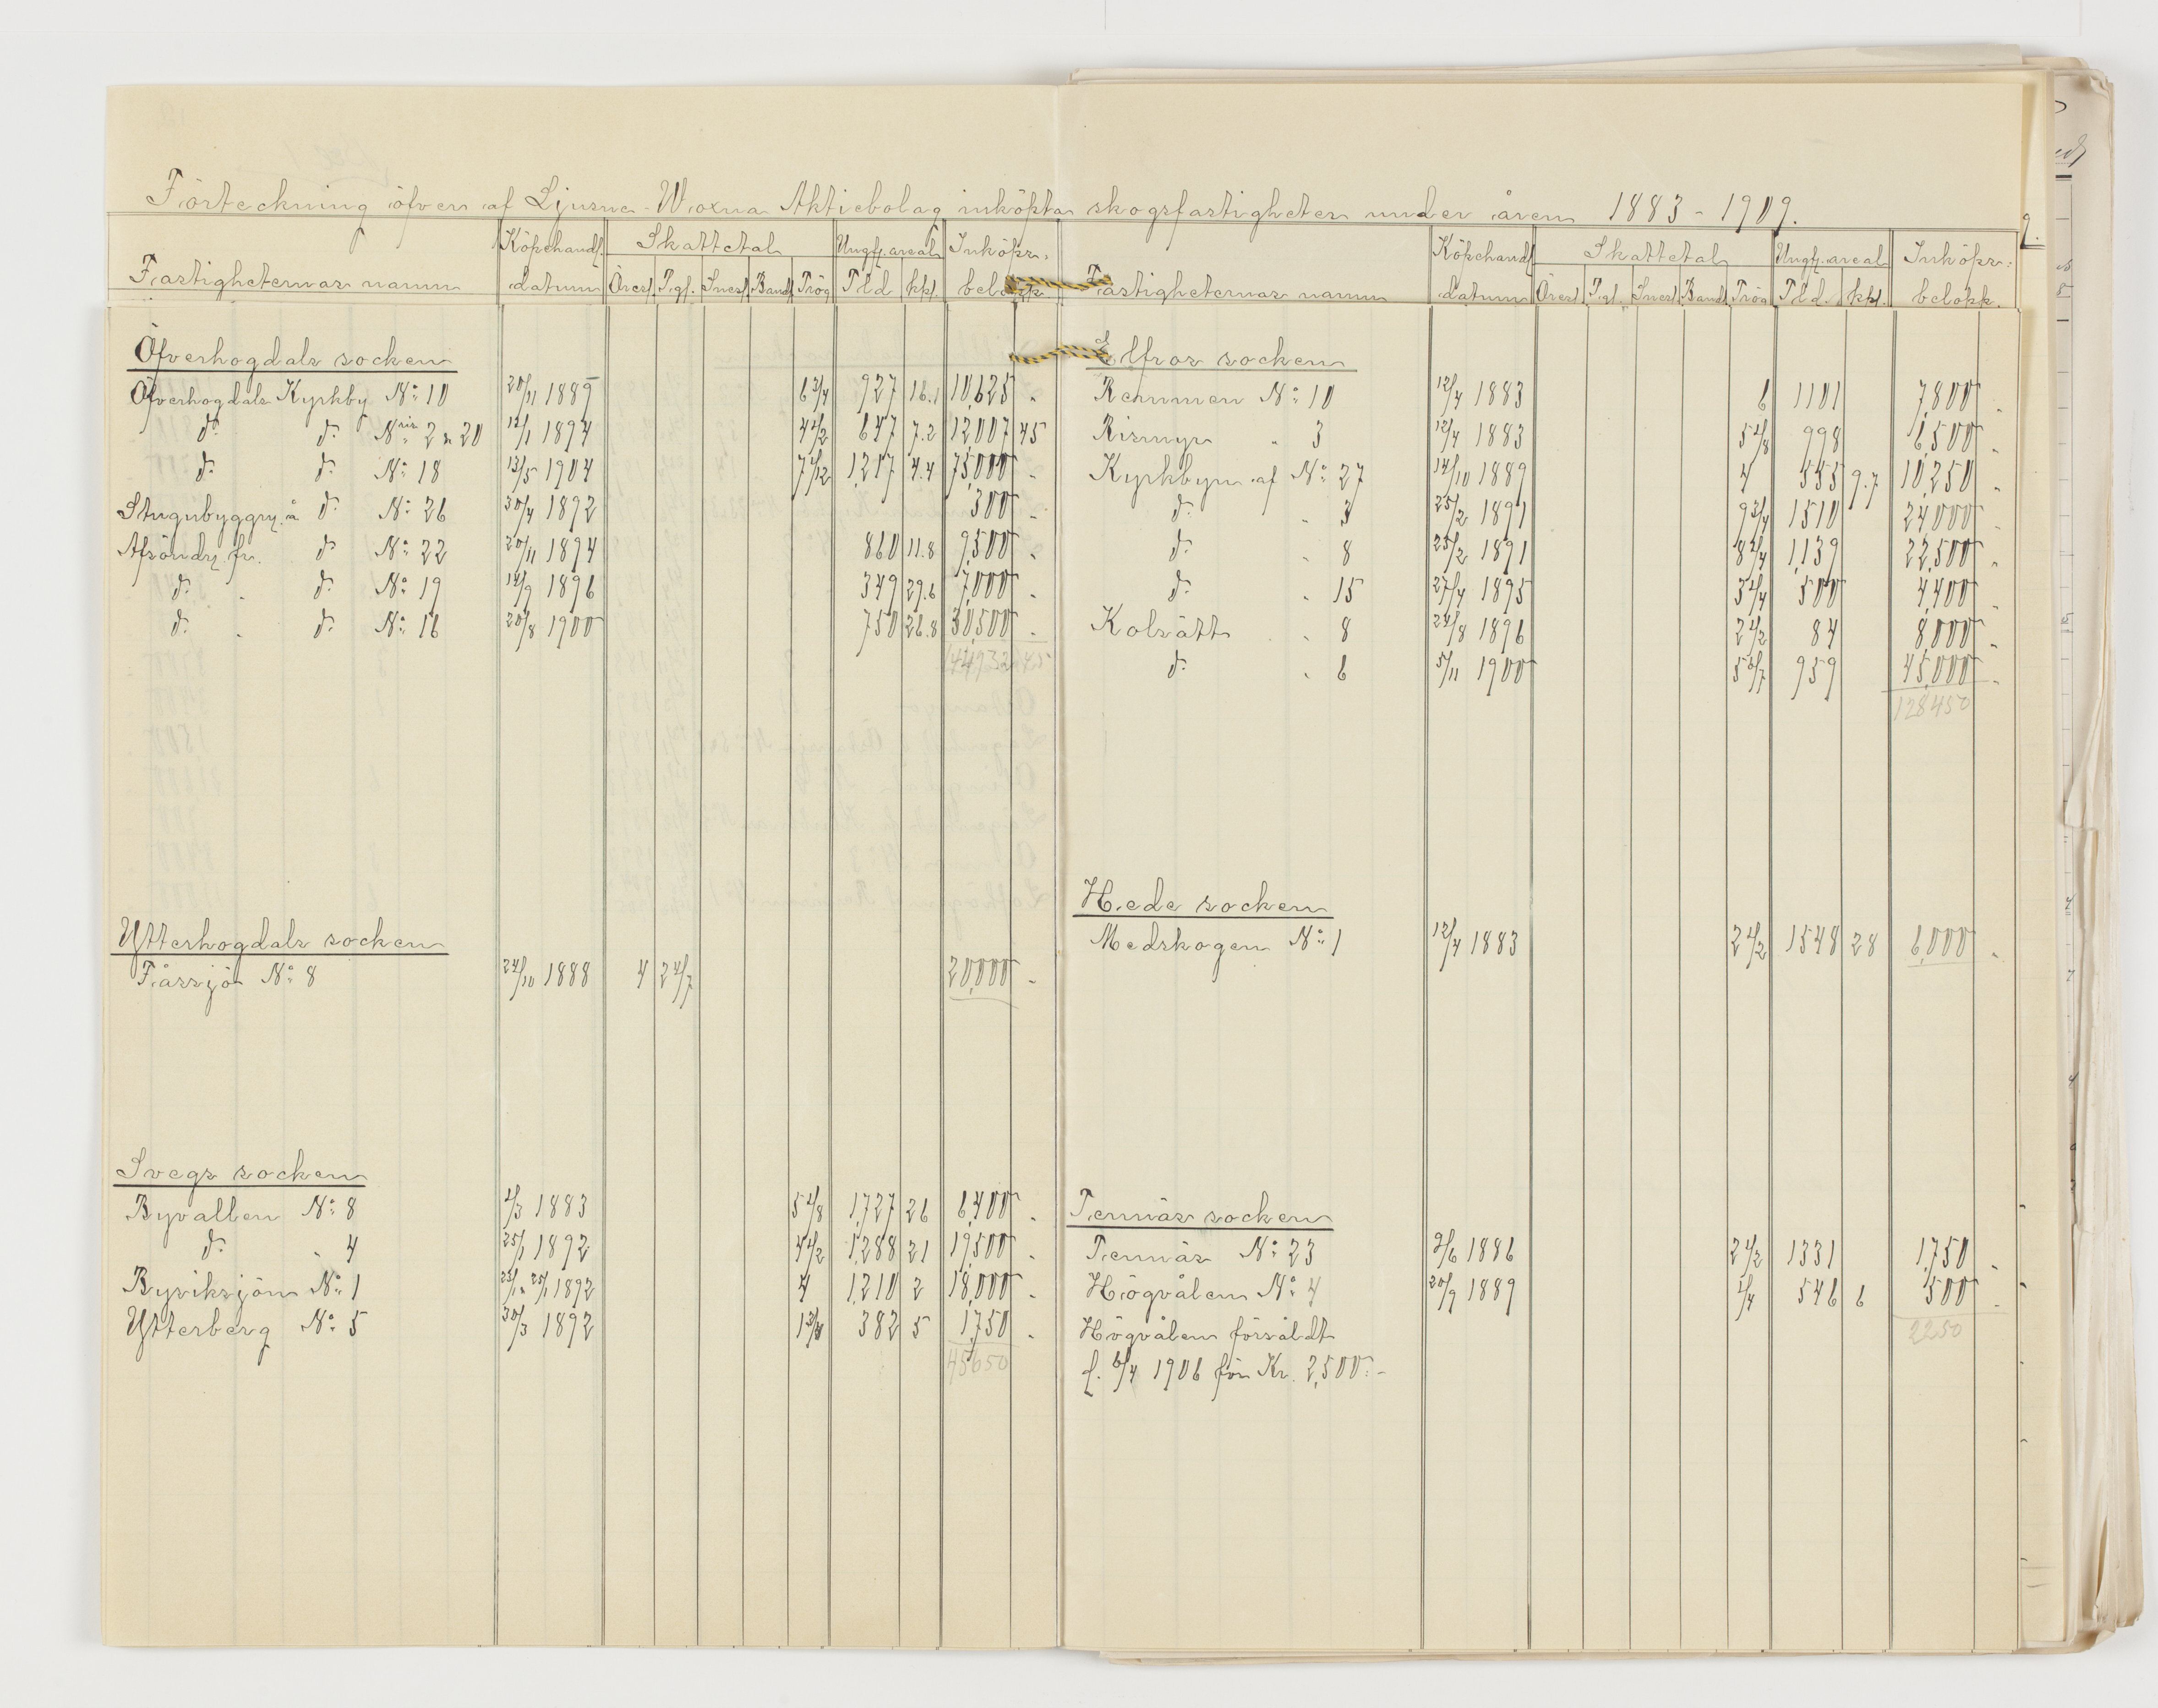 Förteckning öfver af Ljusne-Woxna Aktiebolag inköpta skogsfastigheter under åren 1883-1909.
Fastigheternas namn Köpehandl. datum Skattetal Öresl. Pgl. Snesl. Bandl. Trög Ungf. areal Tld kpl. Inköps-belopp.
Öfverhogdals socken
Öfverhogdals Kyrkby No 10 20/11 1889 6 3/4 927 16.1 10,625 "
do do Nris 2 n 20 12/1 1894 4 1/2 647 7.2 12007 45
do do No 18 13/5 1904 7 1/12 1,217 4.4 75,000 "
Stugubyggn. å do No 26 30/4 1892 300 "
Afsöndr. fr. do No 22 20/11 1894 860 11.8 9,500 "
do " do No 19 14/9 1896 349 29.6 7,000 "
do " do No 16 20/8 1900 750 26.8 30,500 "
144932 45
Ytterhogdals socken
Fåssjö No 8 24/10 1888 4 2 4/7 20,000 "
Svegs socken
Byvallen No 8 1/3 1883 5 1/8 1,727 26 6,400 "
do " 4 25/1 1892 4 1/2 1,288 21 19,500 "
Byviksjön No 1 23/1 n 25/1 1892 4 1,210 2 18,000 "
Ytterberg No 5 30/3 1892 1 3/4 382 5 1,750 "
45650
Fastigheternas namn Köpehandl. datum Skattetal Öresl. Pgl. Snesl. Bandl. Trög Ungf. areal Tld. kpl. Inköps-belopp.
Elfros socken
Remmen No 10 12/4 1883 6 1101 7,800 "
Rismyr " 3 12/4 1883 5 1/8 998 6,500 "
Kyrkbyn af No 27 14/10 1889 4 555 9.7 10,250 "
do " 3 25/2 1891 9 3/4 1510 24,000 "
do " 8 25/2 1891 8 1/4 1,139 22,500 "
do " 15 27/4 1895 3 1/4 500 4,400 "
Kolsätt " 8 24/8 1896 2 1/2 84 8,000 "
do " 6 5/11 1900 5 6/7 959 45,000 "
128450
Hede socken
Medskogen No 1 12/4 1883 2 1/2 1548 28 6,000 "
Tennäs socken
Tennäs No 23 9/6 1886 2 1/2 1331 1,750 "
Högvålen No 4 20/9 1889 1/4 546 6 500 "
Högvålen försåldt
2250
f. 6/4 1906 för Kr. 2,500:-